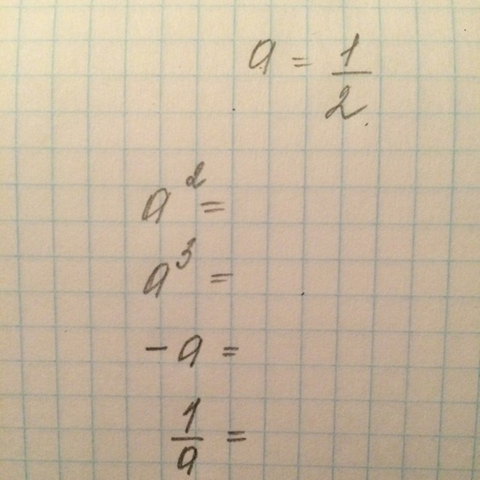 a = 1/2
a² =
a³ =
-a =
1/a =